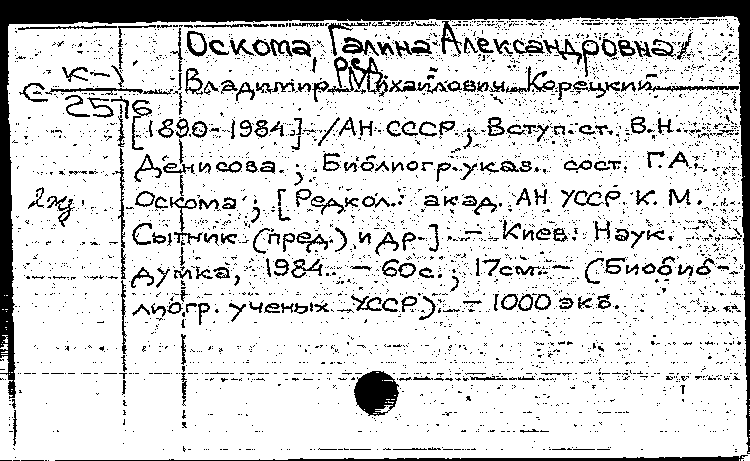 Оскома, Галина Александровна/
ред.
К-1
Владимир Михайлович Корецкий
С 2576
[1890-1984] -/АН СССР ; Вступ. ст. В.Н.
Денисова. ; Библиогр. указ. сост. Г.А.
2 жд.
Оскома ; [Редкол.: акад. АН УССР К.М.
Сытник (пред.) и др.]. - Киев: Наук.
думка, 1984. - 60с. ; 17см. - (Биобиб-
лиогр. ученых УССР). - 1000 экз.